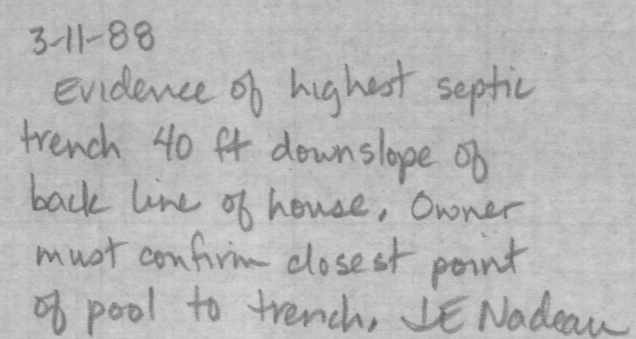 3-11-88
Evidence of highest septic
trench 40 ft downslope of
back line of house. Owner
must confirm closest point
of pool to trench. JE Nadeau